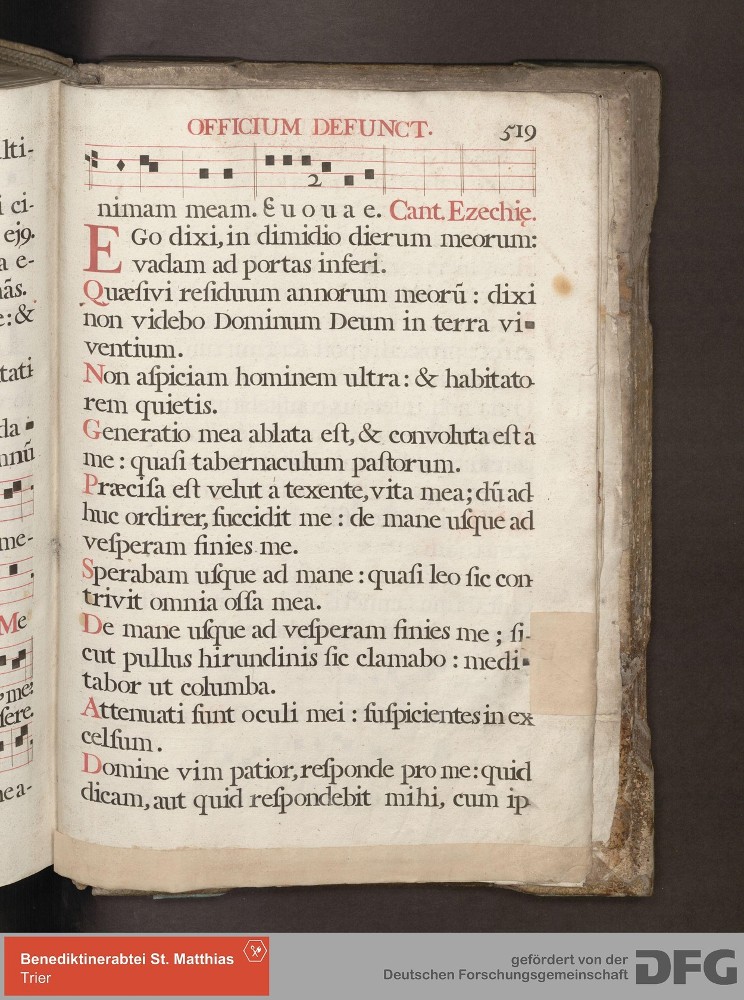 OFFICIUM DEFUNCT. 519
2
nimam meam. E u o u a e. Cant. Ezechię.
EGo dixi, in dimidio dierum meorum:
vadam ad portas inferi.
Quæſivi reſiduum annorum meorũ : dixi
non videbo Dominum Deum in terra vi-
ventium.
Non aſpiciam hominem ultra: & habitato-
rem quietis.
Generatio mea ablata eſt, & convoluta eſt á
me : quaſi tabernaculum paſtorum.
Præciſa eſt velut á texente, vita mea; dũ ad-
huc ordirer, ſuccidit me : de mane uſque ad
veſperam finies me.
Sperabam uſque ad mane : quaſi leo ſic con-
trivit omnia oſſa mea.
De mane uſque ad veſperam finies me ; ſi-
cut pullus hirundinis ſic clamabo : medi-
tabor ut columba.
Attenuati ſunt oculi mei : ſuſpicientes in ex-
celſum.
Domine vim patior, reſponde pro me : quid
dicam, aut quid reſpondebit mihi, cum ip-
lti-
i ci-
ej9.
a e-
e: &
tati
da-
nnũ
me-
Me
me:
ſere.
ne a-
Benediktinerabtei St. Matthias
Trier
gefördert von der
Deutschen Forschungsgemeinschaft
DFG